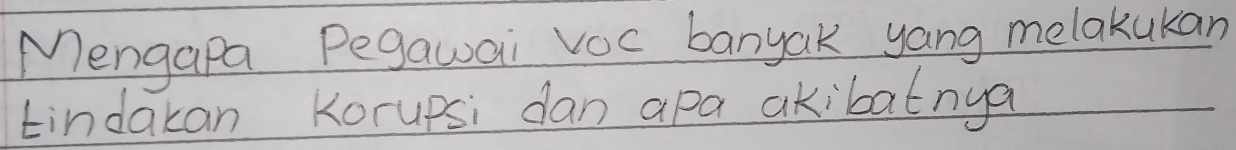 Mengapa Pegawai VOC banyak yang melakukan
tindakan Korupsi dan apa akibatnya